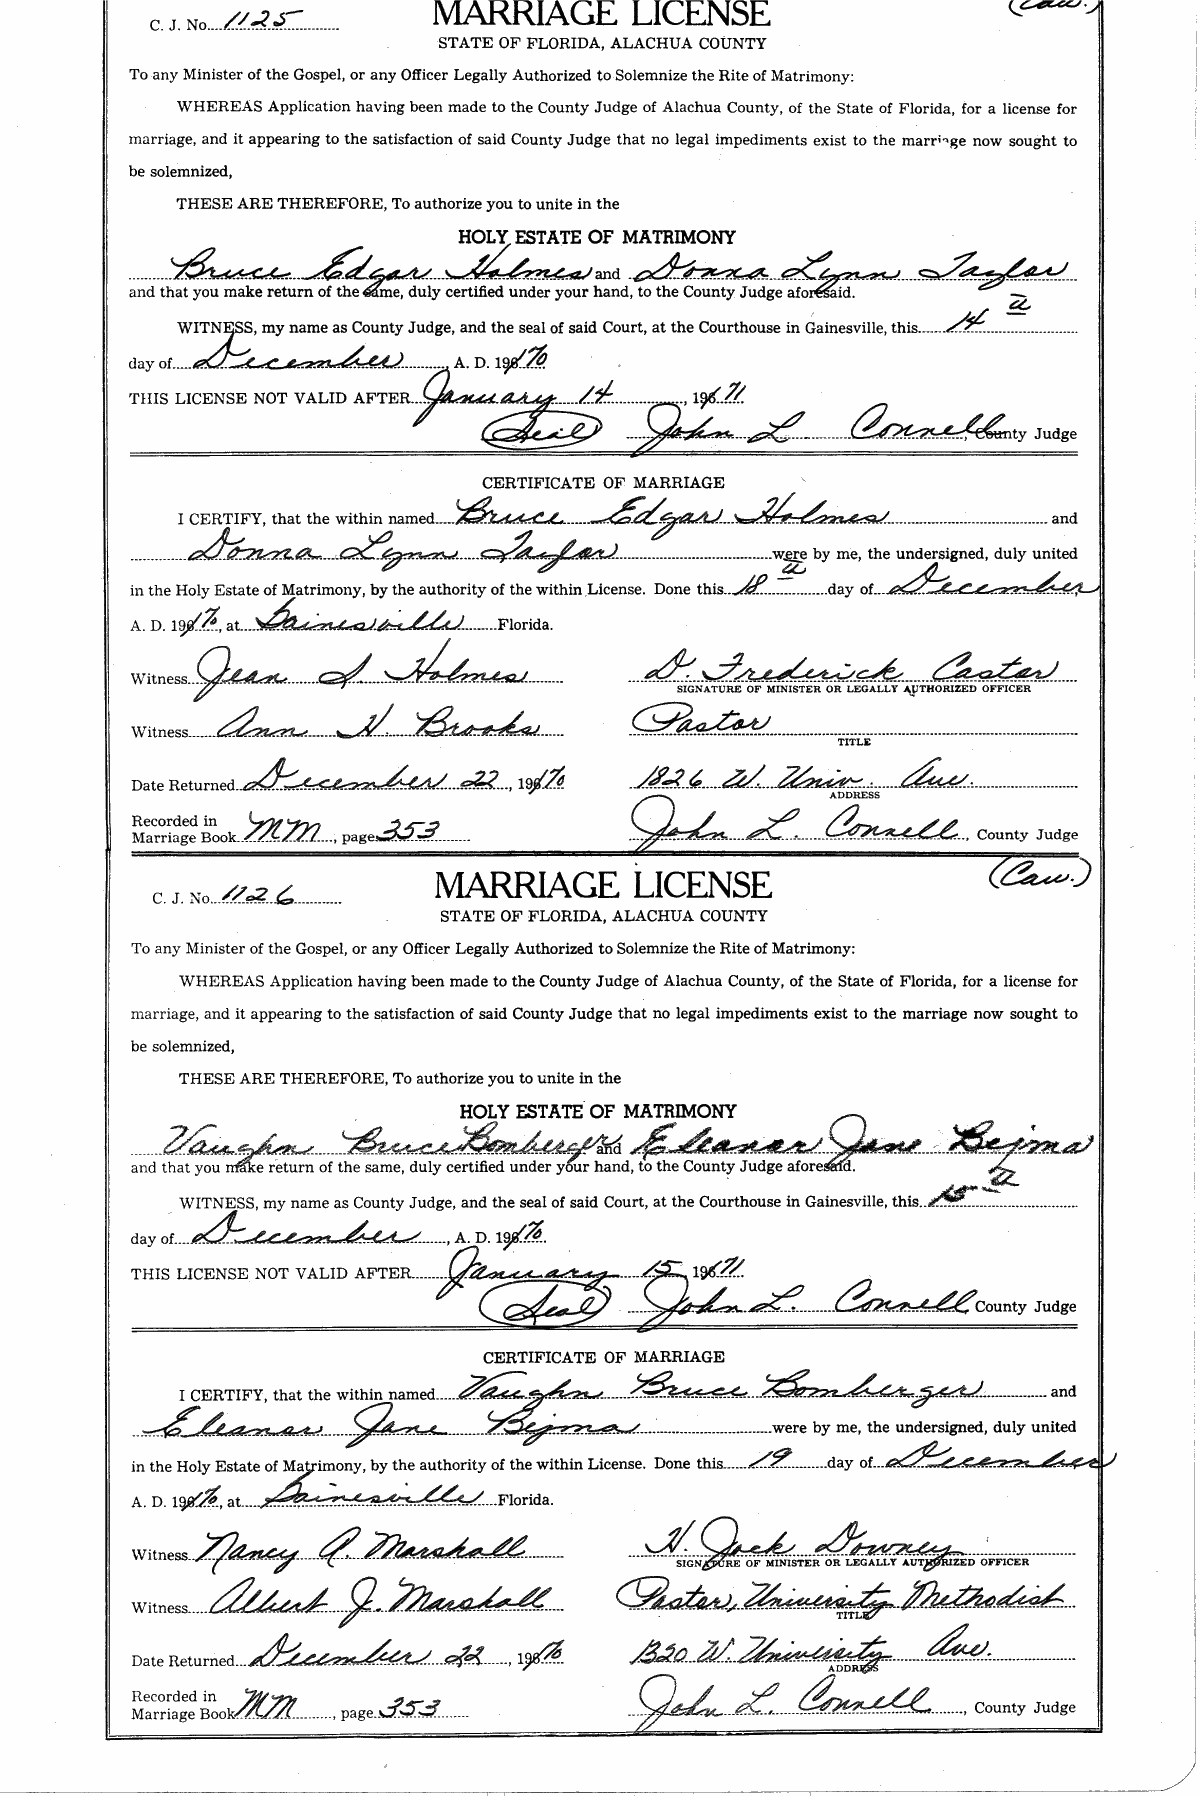 C. J. No. 1125
MARRIAGE LICENSE
(Cau.)
STATE OF FLORIDA, ALACHUA COUNTY
To any Minister of the Gospel, or any Officer Legally Authorized to Solemnize the Rite of Matrimony:
WHEREAS Application having been made to the County Judge of Alachua County, of the State of Florida, for a license for
marriage, and it appearing to the satisfaction of said County Judge that no legal impediments exist to the marriage now sought to
be solemnized,
THESE ARE THEREFORE, To authorize you to unite in the
HOLY ESTATE OF MATRIMONY
Bruce Edgar Holmes and Donna Lynn Taylor
and that you make return of the same, duly certified under your hand, to the County Judge aforesaid.
WITNESS, my name as County Judge, and the seal of said Court, at the Courthouse in Gainesville, this 14
day of December, A. D. 1970
THIS LICENSE NOT VALID AFTER January 14, 1971
(Seal) John L Connell, County Judge
CERTIFICATE OF MARRIAGE
I CERTIFY, that the within named Bruce Edgar Holmes and
Donna Lynn Taylor were by me, the undersigned, duly united
in the Holy Estate of Matrimony, by the authority of the within License. Done this 18 day of December
A. D. 1970, at Gainesville Florida.
Witness Jean S. Holmes D. Frederick Castor
SIGNATURE OF MINISTER OR LEGALLY AUTHORIZED OFFICER
Witness Ann H. Brooks Pastor
TITLE
Date Returned December 22, 1970 1826 W. Univ. Ave.
ADDRESS
Recorded in
Marriage Book MM, page 353 John L. Connell, County Judge
C. J. No. 1126
MARRIAGE LICENSE
(Cau.)
STATE OF FLORIDA, ALACHUA COUNTY
To any Minister of the Gospel, or any Officer Legally Authorized to Solemnize the Rite of Matrimony:
WHEREAS Application having been made to the County Judge of Alachua County, of the State of Florida, for a license for
marriage, and it appearing to the satisfaction of said County Judge that no legal impediments exist to the marriage now sought to
be solemnized,
THESE ARE THEREFORE, To authorize you to unite in the
HOLY ESTATE OF MATRIMONY
Vaughn Bruce Bomberger and Eleanor Jane Bejma
and that you make return of the same, duly certified under your hand, to the County Judge aforesaid.
WITNESS, my name as County Judge, and the seal of said Court, at the Courthouse in Gainesville, this 15
day of December, A. D. 1970
THIS LICENSE NOT VALID AFTER January 15, 1971
(Seal) John L. Connell County Judge
CERTIFICATE OF MARRIAGE
I CERTIFY, that the within named Vaughn Bruce Bomberger and
Eleanor Jane Bejma were by me, the undersigned, duly united
in the Holy Estate of Matrimony, by the authority of the within License. Done this 19 day of December
A. D. 1970, at Gainesville Florida.
Witness Nancy A. Marshall H. Jack Downey
SIGNATURE OF MINISTER OR LEGALLY AUTHORIZED OFFICER
Witness Albert J. Marshall Pastor, University Methodist
TITLE
Date Returned December 22, 1970 1320 W. University Ave.
ADDRESS
Recorded in
Marriage Book MM, page 353 John L. Connell, County Judge